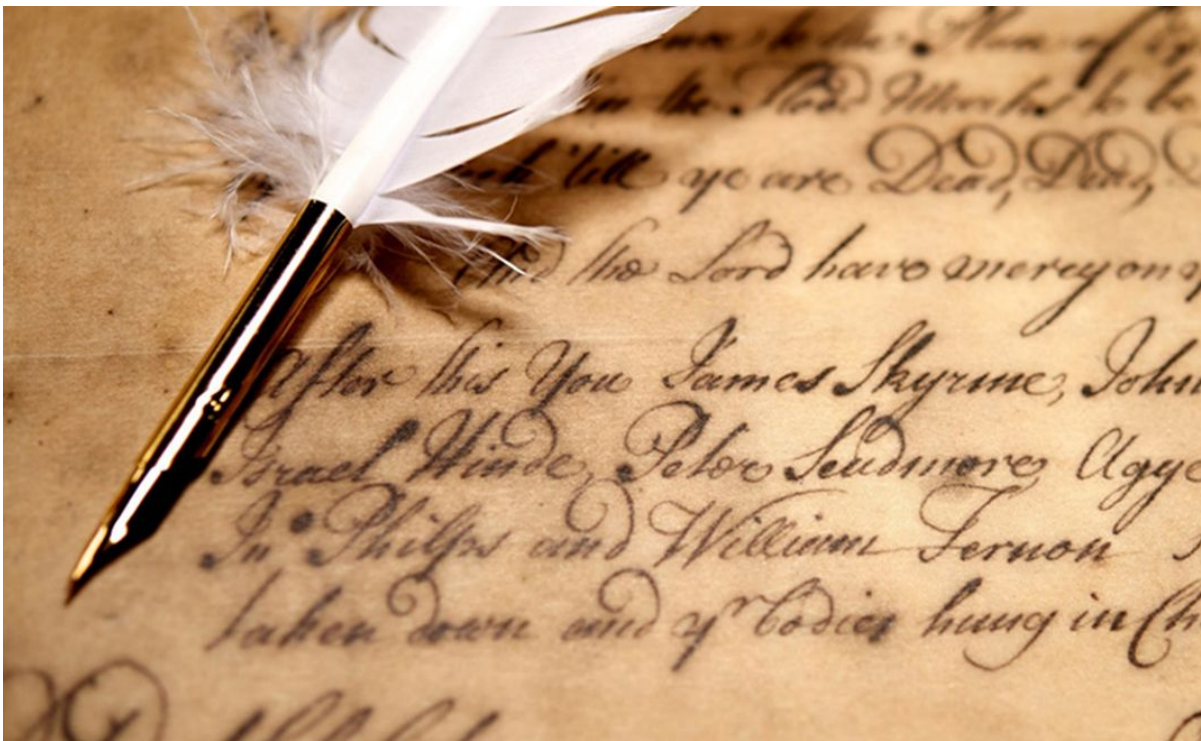 the Place of
the Flood Marks to be
'till ye are Dead, Dead,
And the Lord have mercy on
After this You James Skyrme, John
Israel Hinde, Peter Scudmore, Agge
Jnº Philips and William Fernon
taken down and yr bodies hung in Ch